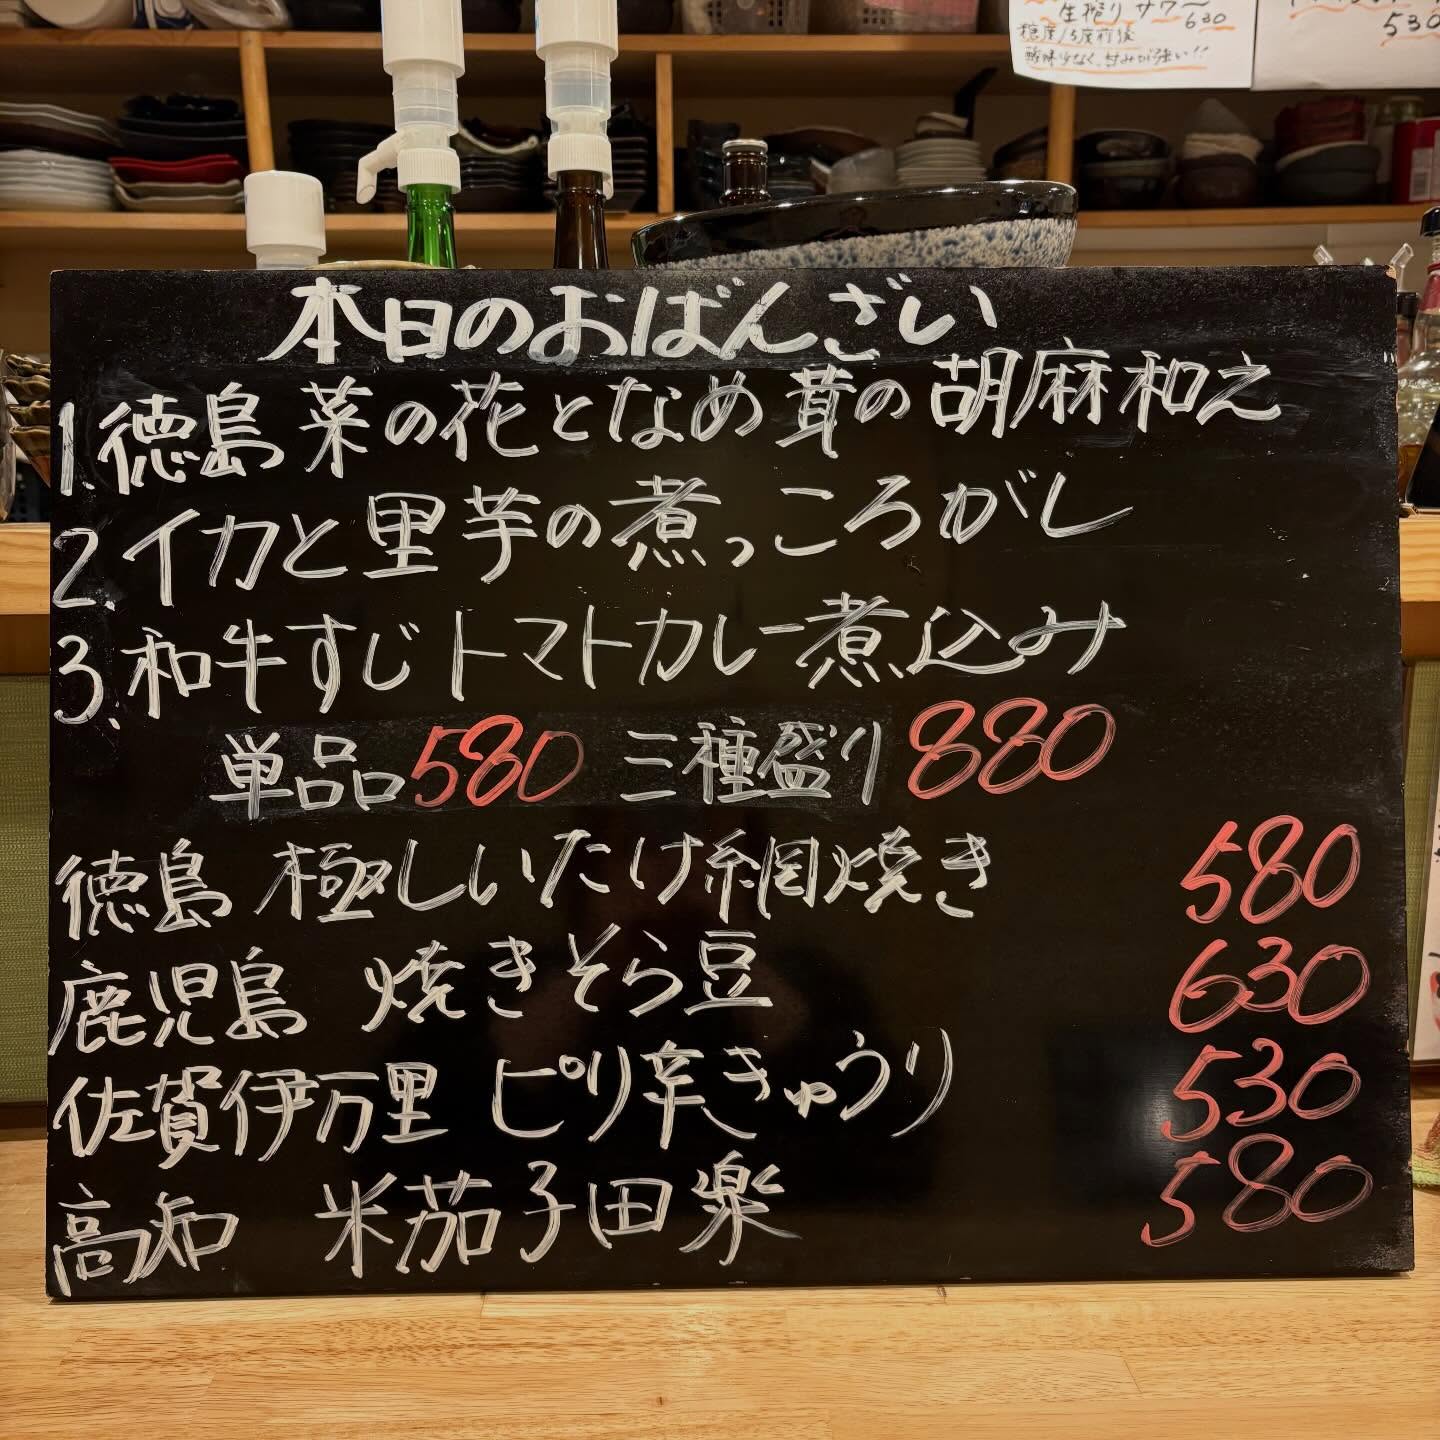 生搾りサワー
630
糖度15度前後
酸味少なく、甘みが強い!!
530
本日のおばんざい
1.徳島 菜の花となめ茸の胡麻和え
2.イカと里芋の煮っころがし
3.和牛すじトマトカレー煮込み
単品580 三種盛り880
徳島 極しいたけ網焼き 580
鹿児島 焼きそら豆 630
佐賀伊万里 ピリ辛きゅうり 530
高知 米茄子田楽 580